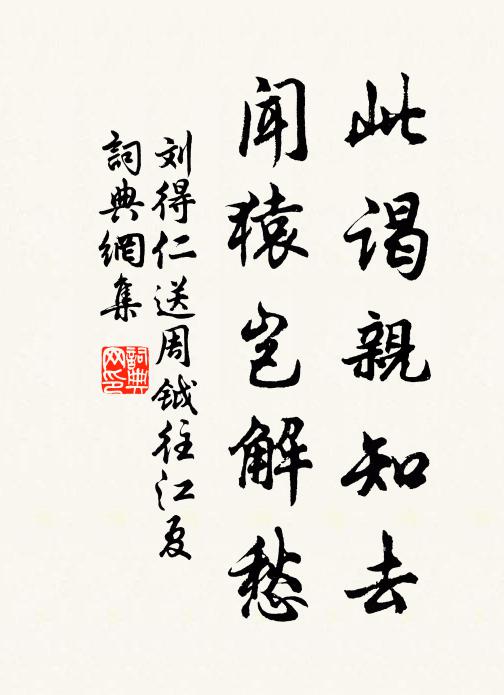 此谒親知去
聞猿岂解愁
刘得仁送周鉞往江夏
詞典網集
詞典
网印